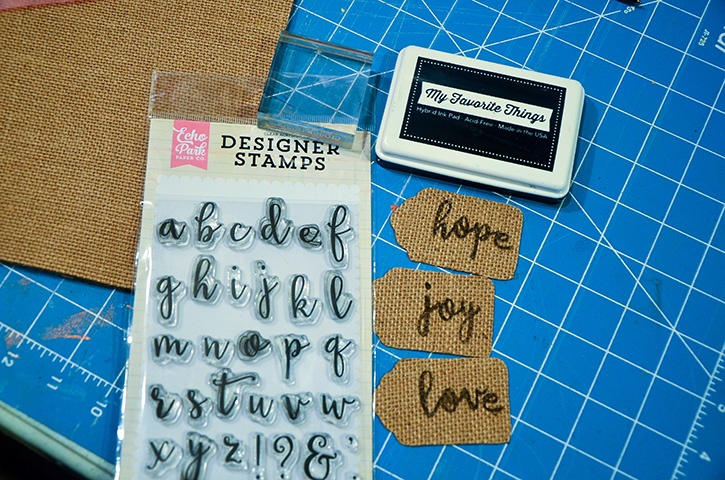 Echo
Park
PAPER CO.
DESIGNER
STAMPS
a b c d e f
g h i j k l
m n o p q
r s t u v w
x y z ! ? & '
My Favorite Things
Hybrid Ink Pad · Acid-Free · Made in the USA
hope
joy
love
12
11
4
10